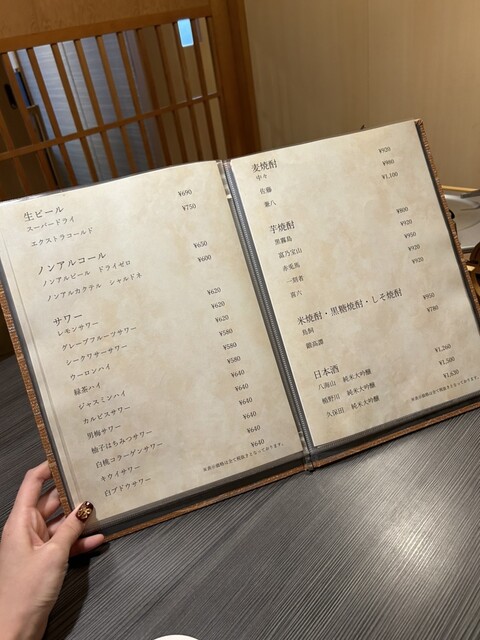 生ビール
スーパードライ ¥690
エクストラコールド ¥750
ノンアルコール
ノンアルビール ドライゼロ ¥650
ノンアルカクテル シャルドネ ¥600
サワー
レモンサワー ¥620
グレープフルーツサワー ¥620
シークワサーサワー ¥620
ウーロンハイ ¥580
緑茶ハイ ¥580
ジャスミンハイ ¥580
カルピスサワー ¥640
男梅サワー ¥640
柚子はちみつサワー ¥640
白桃コラーゲンサワー ¥640
キウイサワー ¥640
白ブドウサワー ¥640
※表示価格は全て税抜きとなっております。
麦焼酎
中々 ¥920
佐藤 ¥980
兼八 ¥1,100
芋焼酎
黒霧島 ¥800
富乃宝山 ¥920
赤兎馬 ¥950
一刻者 ¥920
富六 ¥920
米焼酎・黒糖焼酎・しそ焼酎
鳥飼 ¥900
鍛高譚 ¥780
日本酒
八海山 純米大吟醸 ¥1,260
楯野川 純米大吟醸 ¥1,500
久保田 純米大吟醸 ¥1,620
※表示価格は全て税抜きとなっております。